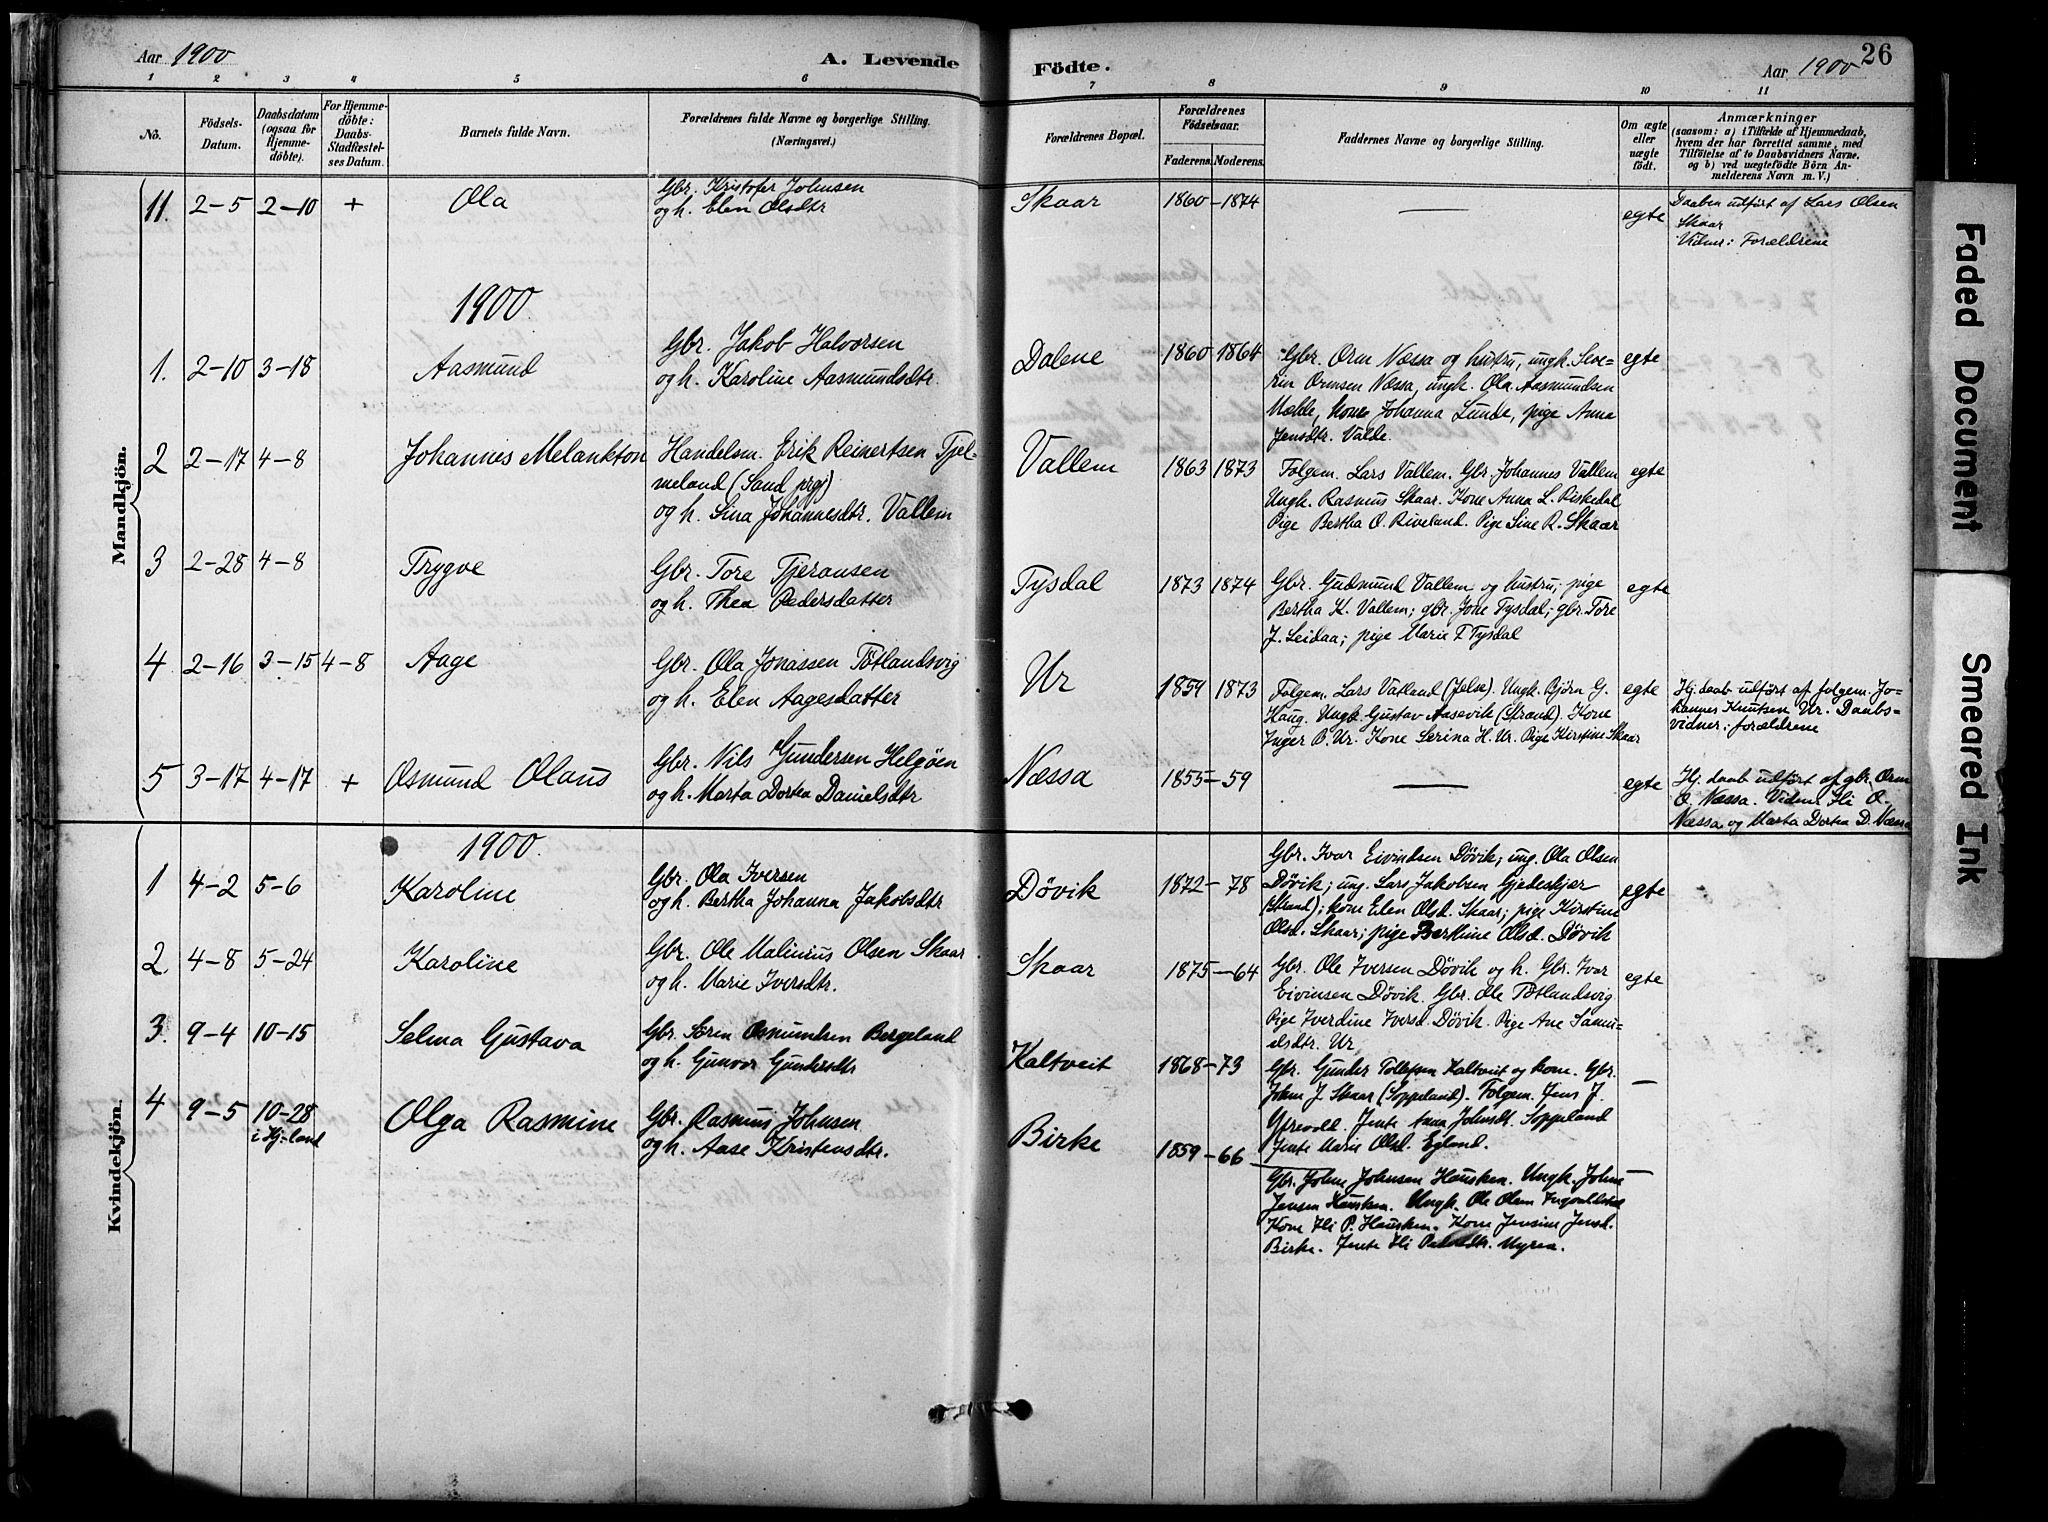 Aar 1900
A. Levende
Födte.
Aar 1900
26
1 2 3 4 5 6 7 8 9 10 11
No.
Födsels-
Datum.
Daabsdatum
(ogsaa for
Hjemme-
döbte).
For Hjemme-
döbte:
Daabs-
Stadfæstel-
ses Datum.
Barnets fulde Navn.
Forældrenes fulde Navne og borgerlige Stilling.
(Næringsvei.)
Forældrenes Bopæl.
Forældrenes
Födselsaar.
Faderens. Moderens.
Faddernes Navne og borgerlige Stilling.
Om ægte
eller
uægte
födt.
Anmærkninger
(saasom: a) i Tilfælde af Hjemmedaab,
hvem der har forrettet samme, med
Tilföielse af to Daabsvidners Navne.
og b) ved uægtefödte Börn An-
melderens Navn m. V.)
Mandkjön.
11. 2-5 2-10 + Ola
Gbr. Kristofer Johnsen
og h. Elen Olsdtr
Skaar 1860-1874 — egte
Daaben udført af Lars Olsen
Skaar
Vidner: Forældrene
1900
1. 2-10 3-18 Aasmund
Gbr. Jakob Halvorsen
og h. Karoline Aasmundsdtr.
Dalene 1860-1864
Gbr. Orm Næssa og hustru, ungk. Seve-
rin Ormsen Næssa, ungk. Ola Aasmundsen
Mæhle, kone Johanna Lunde, pige Anna
Jensdtr. Valde.
egte
2 2-17 4-8 Johannes Melankton
Handelsm. Erik Reinertsen Tjel-
meland (Sand prgj)
og h. Sina Johannesdtr. Vallem
Vallem 1863 1873
Folgem. Lars Vallem. Gbr. Johannes Vallem
Ungk. Rasmus Skaar. Kone Anna L. Riskedal
Pige Bertha O. Riveland. Pige Sine R. Skaar
egte
3 2-28 4-8 Trygve
Gbr. Tore Tjeransen
og h. Thea Pedersdatter
Tysdal 1873 1874
Gbr. Gudmund Vallem og hustru; pige
Bertha K. Vallem; gbr. Jone Tysdal; gbr. Tore
J. Leidaa; pige Marie T Tysdal
egte
4 2-16 3-15 4-8 Aage
Gbr. Ola Jonassen Tøtlandsvig
og h. Elen Aagesdatter
Ur 1859 1873
Folgem. Lars Vatland (Jelse). Ungk. Bjørn G.
Haug. Ungk. Gustav Aasevik (Strand). Kone
Inger B. Ur. Kone Serina H. Ur. Pige Kirstine Skaar
egte
Hj. daab udført af folgem. Jo-
hannes Knutsen Ur. Daabs-
vidner: forældrene
5 3-17 4-17 + Osmund Olaus
Gbr. Nils Gundersen Helgøen
og h. Marta Dortea Danielsdtr
Næssa 1855-59 — egte
Hj. daab udført af gbr. Orm
O. Næssa. Vidner Hli O.
Næssa og Marta Dortea D. Næssa
Kvindekjön.
1900
1 4-2 5-6 Karoline
Gbr. Ola Iversen
og h. Bertha Johanna Jakobsdtr
Døvik 1872-78
Gbr. Ivar Eivindsen Døvik; ung. Ola Olsen
Døvik; ung. Lars Jakobsen Gjedeskjer
(Strand); kone Elen Olsd. Skaar; pige Kirstine
Olsd. Skaar; pige Berthine Olsd. Døvik
egte
2 4-8 5-24 Karoline
Gbr. Ole Malinius Olsen Skaar
og h. Marie Iversdtr.
Skaar 1875-64
Gbr. Ole Iversen Døvik og h. Gbr. Ivar
Eivinsen Døvik. Gbr. Ole Tøtlandsvig
Pige Iverdine Iversd. Døvik. Pige Ane Samu-
elsdtr. Ur
egte
3. 9-4 10-15 Selma Gustava
Gbr. Søren Osmundsen Bergeland
og h. Gunvor Gundersdtr
Kaltveit 1868-73
Gbr. Gunder Tollefsen Kaltveit og kone. Gbr.
John J. Skaar (Soppeland). Folgem. Jens J.
Ytrevold. Jente Anna Johnsdt. Soppeland
Jente Marie Olsd. Eyland.
—
4 9-5 10-28
i Hj-land
Olga Rasmine
Gbr. Rasmus Johnsen
og h. Aase Kristensdtr.
Birke 1859-66
Gbr. John Johnsen Hausken. Ungk. John
Jensen Hausken. Ungk. Ole Olsen
Kone Hli P. Hausken. Kone Jensine Jensd.
Birke. Jente Hli Myren.
—
Faded Document
Smeared Ink